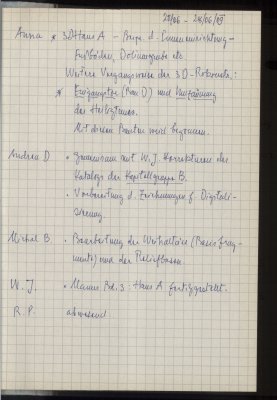 22/06 - 26/06/09
Anna * 3D Haus A - Bespr. d. Inneneinrichtung -
Fußböden, Dolinengrube etc
Weitere Vorgangsweise der 3D-Rekonstr.:
* Eingangstor (Bau D) und Umzäunung
des Heiligtums.
Mit diesen Bauten wird begonnen.
Andrea D. • Gemeinsam mit W. J. Korrekturen des
Katalogs der Kapitellgruppe B.
• Vorbereitung d. Zeichnungen f. Digitali-
sierung.
Michal B. • Bearbeitung der Weihaltäre (Basisfrag-
mente) und der Reliefbasen.
W. J. • Manus Bd. 3: Haus A fertiggestellt.
R. P. abwesend